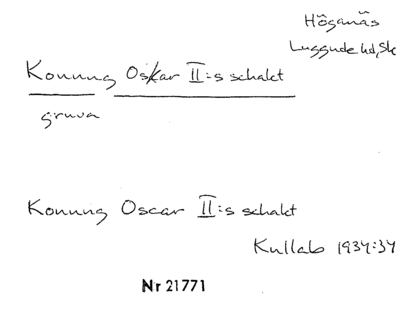 Höganäs
Luggude hd, Sk
Konung Oskar II:s schakt
gruva
Konung Oscar II:s schakt
Kullab 1934:34
Nr 21771